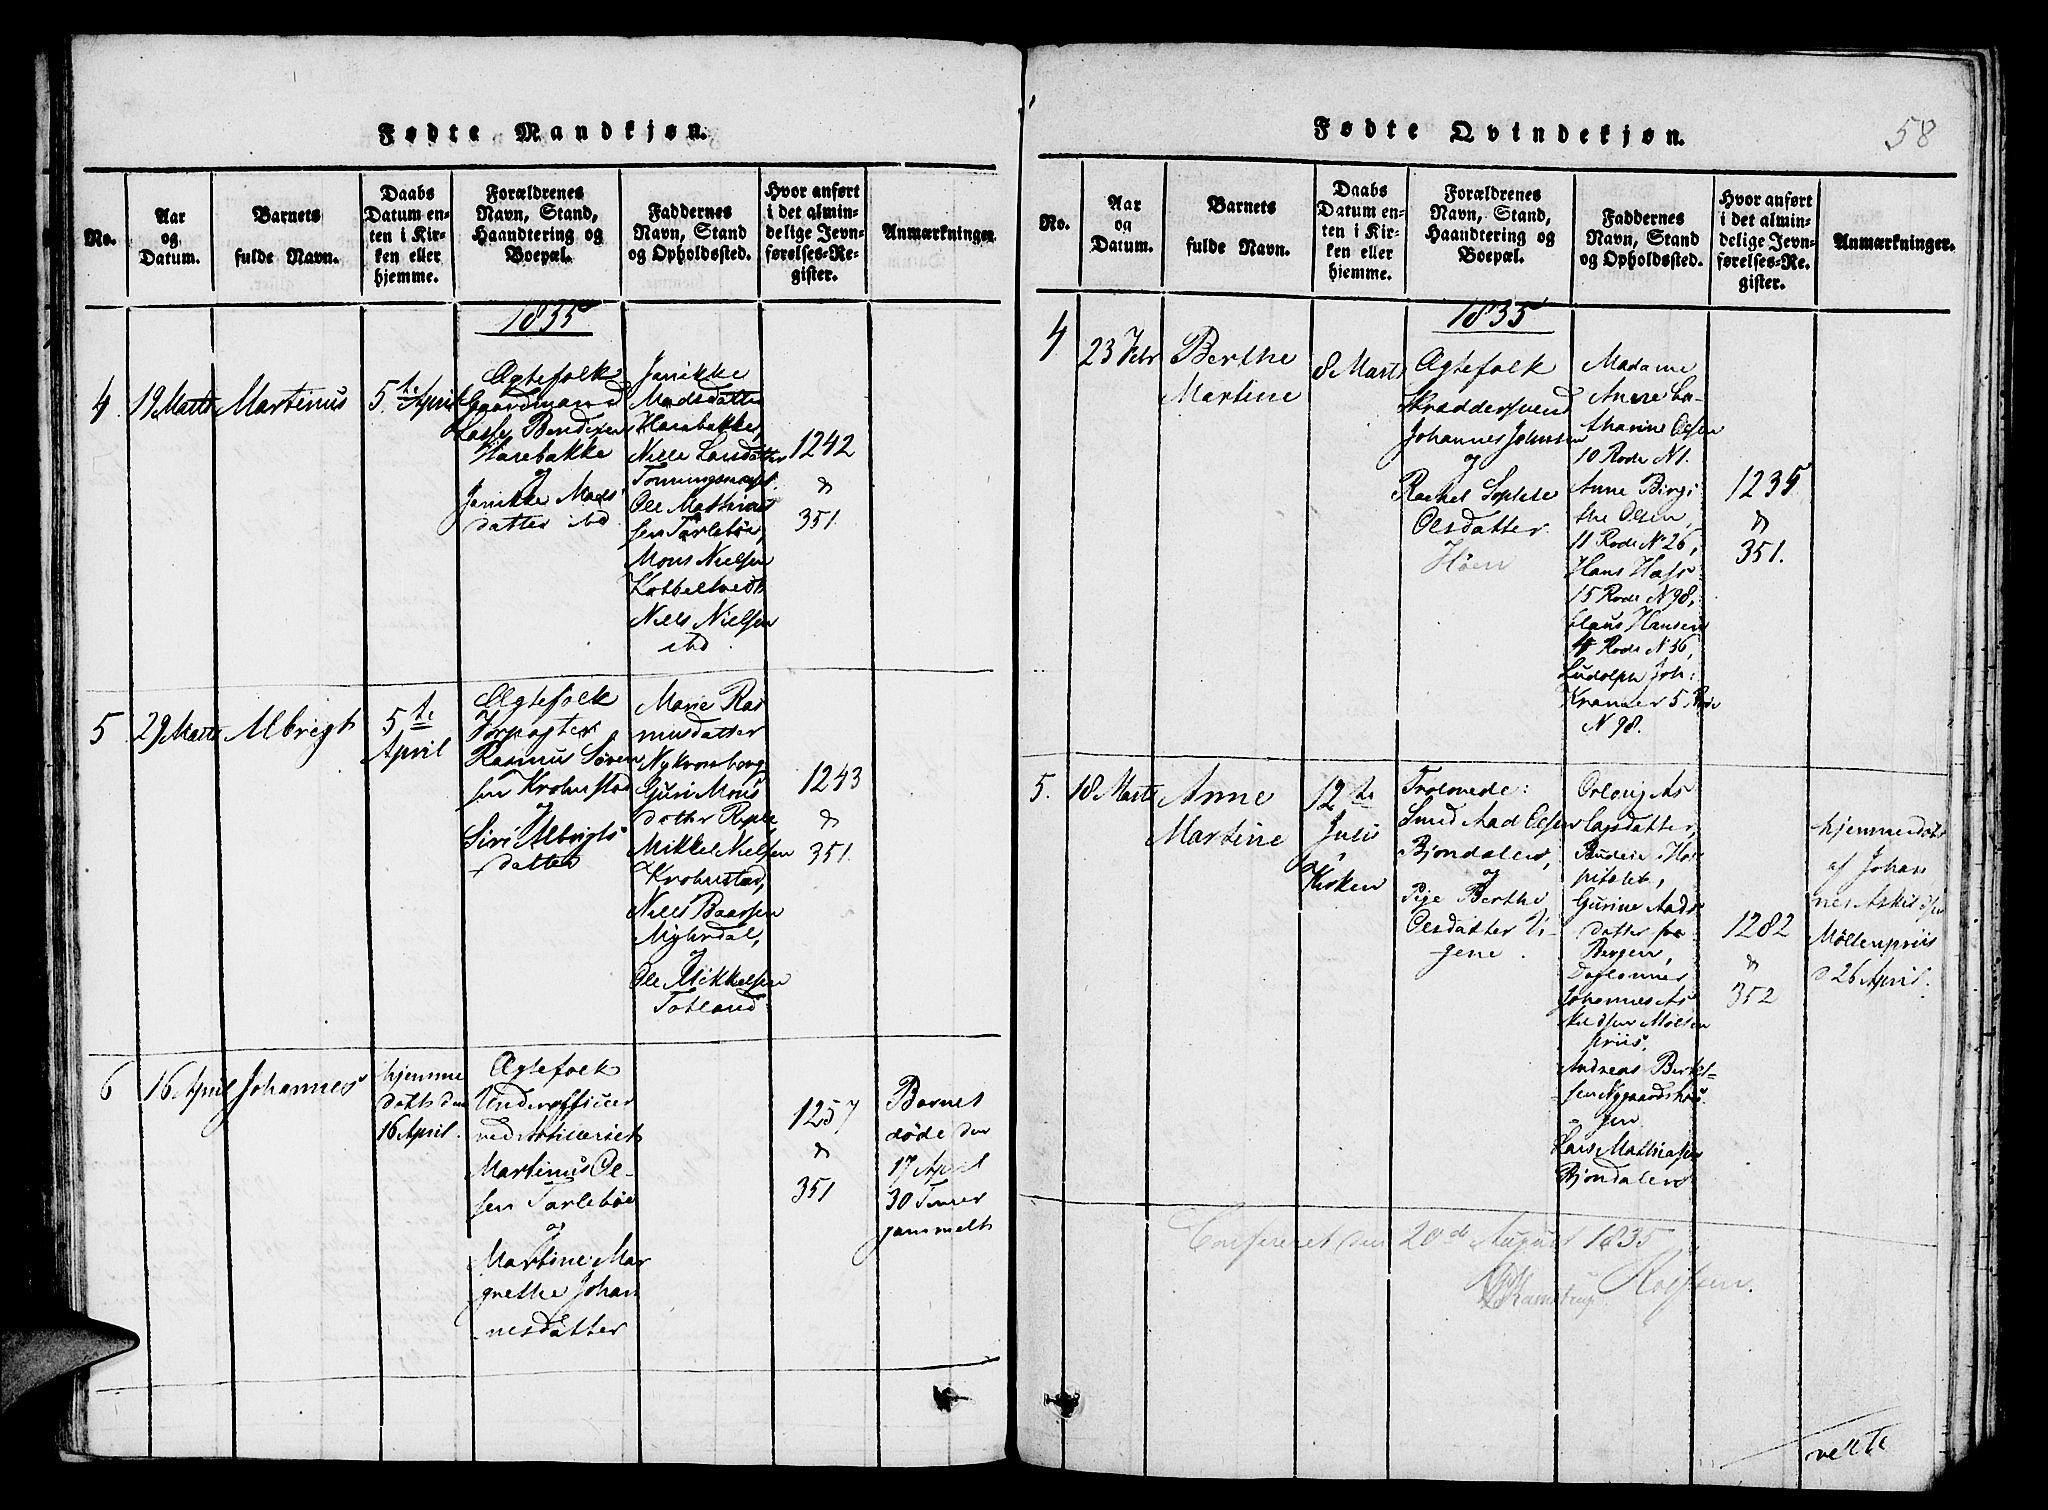 Fødte Mandkjøn.
No.
Aar
og
Datum.
Barnets
fulde Navn.
Daabs
Datum en-
ten i Kir-
ken eller
hjemme.
Forældrenes
Navn, Stand,
Haandtering og
Boepæl.
Faddernes
Navn, Stand
og Opholdssted.
Hvor anført
i det almin-
delige Jevn-
førelses-Re-
gister.
Anmærkninger.
1835
4.
19 Marts
Martinus
5te April
Ægtefolk
Gaardmand
Lasse Bendixen
Harebakke
og
Janikke Mads
datter ibd
Janikke
Madsdatter
Harebakke,
Nille Larsdatter
Ole Mathias
sen Tarlebøe,
Mons Nielsen
Niels Nielsen
ibd.
1242
351.
5
29 Marts
Albrigt
5te
April
Ægtefolk
Forpagter
Rasmus Sören
sen Krohnstad
og
Siri Albrigts
datter
Marie Ras
musdatter
Nykronborg
Guri Mons
datter
Mikkel Nielsen
Krohnstad,
Niels Baarsen
Myhrdal,
og
Ole Mikkelsen
Totland
1243
351.
6
16 April
Johannes
hjemme
døbt den
16 April.
Ægtefolk
Underofficer
ved Artilleriet
Martinus Ol-
sen Tarlebøe
og
Martine Mar
grethe Johan
nesdatter
1257
351
Barnet
døde den
17 April
30 Timer
gammelt
Fødte Qvindekjøn.
58
No.
Aar
og
Datum.
Barnets
fulde Navn.
Daabs
Datum en-
ten i Kir-
ken eller
hjemme.
Forældrenes
Navn, Stand,
Haandtering og
Boepæl.
Faddernes
Navn, Stand
og Opholdssted.
Hvor anført
i det almin-
delige Jevn-
førelses-Re-
gister.
Anmærkninger.
1835
4
23 Febr
Berthe
Martine
8 Marts
Ægtefolk
Skræddersvend
Johannes Johnsen
og
Rachel Sophie
Olsdatter
Höen
Madame
Anne Ca-
tharine Olsen
10 Rode N 1.
Anne Birgi
the Olsen,
11 Rode N 26,
Hans Hass
15 Rode N 98,
Claus Hansen
Rode N 36,
Ludolph Joh:
Kramer 5 Rode
N 98.
1235
351.
5.
18 Marts
Anne
Martine
12te
Juli
i
Kirken
Trolovede:
Smed Aad Olsen
Bjöndalen,
og
Pige Berthe
Olsdatter Vi-
gene.
As
lagsdatter,
Hos
pitalet,
Gurine Aads
datter fra
Bergen,
Johannes As
kildsen Møllen
priis,
Andreas Bertel-
sen Nygaardshau
gen
Lars Mathiasen
Bjöndalen
1282
352
hjemmedøbt
af Johan
nes Askildsen
Möllenpriis
d 26 April.
Confereret den 20de August 1835
Kamstrup
vertte